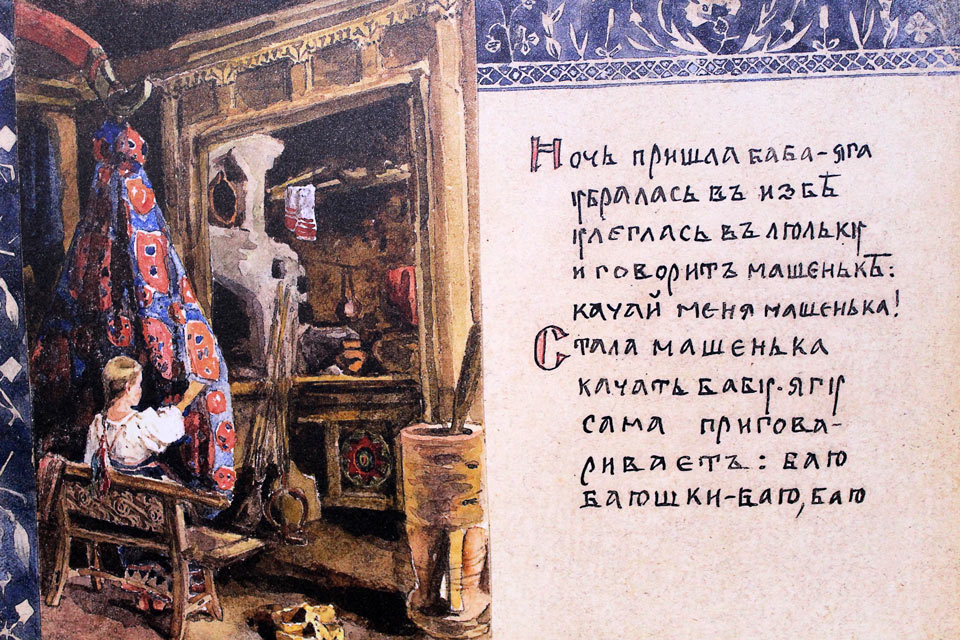 Ночь пришла баба-яга
убралась въ избѣ
улеглась въ люльку
и говоритъ машенькѣ:
качай меня машенька!
Стала машенька
качать бабу-ягу
сама пригова-
риваетъ: баю
баюшки-баю, баю